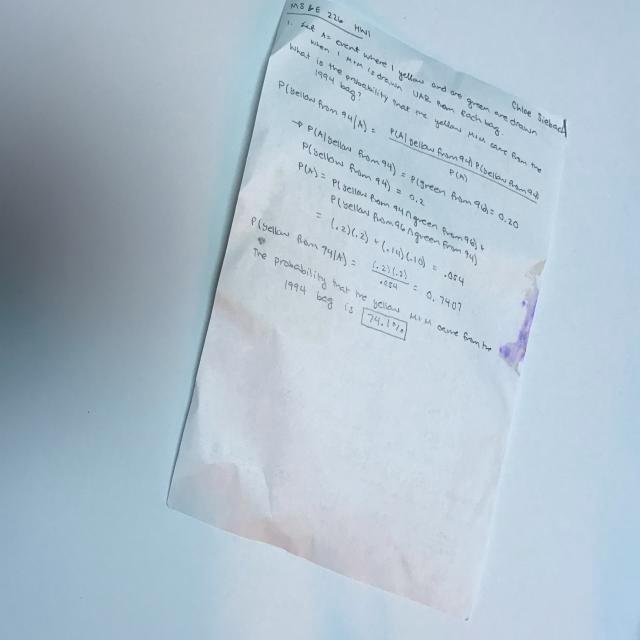 MS&E 226 HW1
Chloe
1. Let A = event where 1 yellow and one green are drawn
when 1 M&M is drawn UAR from each bag.
What is the probability that the yellow M&M came from the
1994 bag?
P(yellow from 94|A) = P(A|yellow from 94) P(yellow from 94)
P(A)
→ P(A|yellow from 94) = P(green from 96) = 0.20
P(yellow from 94) = 0.2
P(A) = P(yellow from 94 ∩ green from 96) +
P(yellow from 96 ∩ green from 94)
= (.2)(.2) + (.14)(.10) = .054
P(yellow from 94|A) = (.2)(.2) = 0.7407
.054
The probability that the yellow M&M came from the
1994 bag is 74.1%